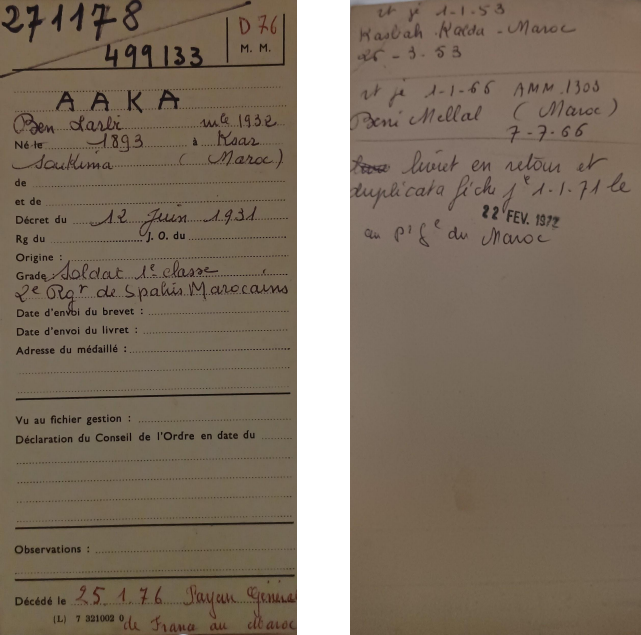 271178
D 76
M. M.
499133
AAKA
Ben Larbi mle 1932
Né le 1893 à Ksar
Soukima (Maroc)
de
et de
Décret du 12 Juin 1931
Rg du J. O. du
Origine :
Grade : Soldat 1e classe
2e Rgt de Spahis Marocains
Date d'envoi du brevet :
Date d'envoi du livret :
Adresse du médaillé :
Vu au fichier gestion :
Déclaration du Conseil de l'Ordre en date du
Observations :
Décédé le 25.1.76 Payeur Général
(L) 7 321002 0 de France au Maroc
vt je 1-1-53
Kasbah Kalda - Maroc
25-3-53
vt je 1-1-66 AMM.1303
Beni Mellal (Maroc)
7-7-66
livret en retour et
duplicata fiche je 1.1.71 le
22 FEV. 1972
au du Maroc